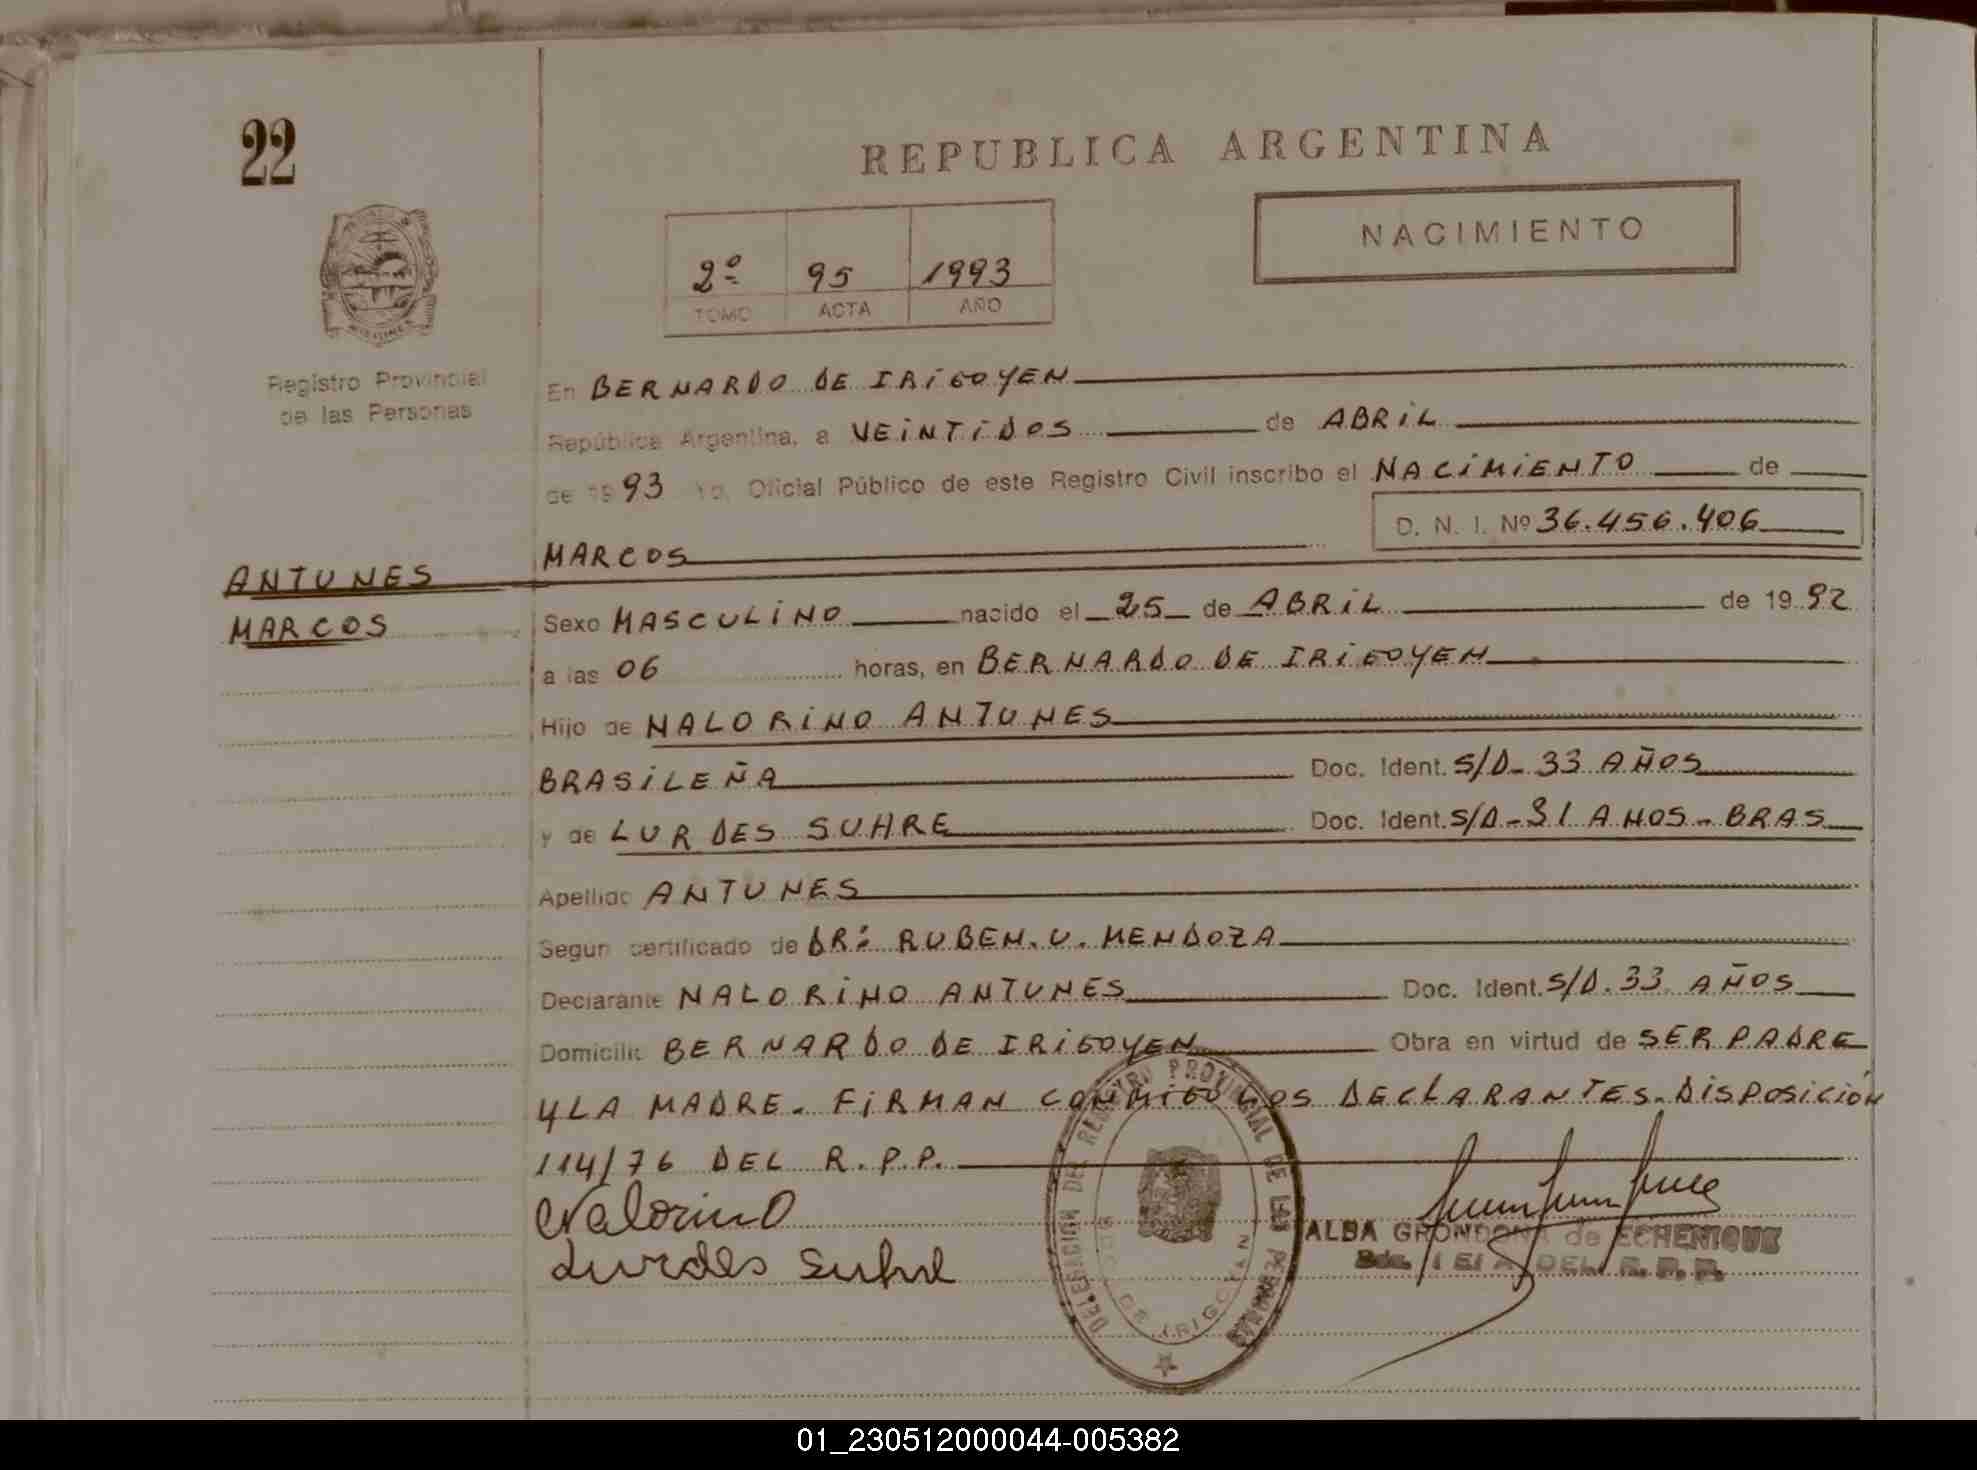 22
REPUBLICA ARGENTINA
NACIMIENTO
2º 95 1993
TOMO ACTA AÑO
Registro Provincial
de las Personas
En BERNARDO DE IRIGOYEN
República Argentina, a VEINTIDOS de ABRIL
de 1993 Yo, Oficial Público de este Registro Civil inscribo el NACIMIENTO de
D. N. I. Nº 36.456.406
MARCOS
ANTUNES
MARCOS
Sexo MASCULINO nacido el 25 de ABRIL de 1992
a las 06 horas, en BERNARDO DE IRIGOYEN
Hijo de NALORINO ANTUNES
BRASILEÑA Doc. Ident. S/D- 33 AÑOS
y de LURDES SUHRE Doc. Ident. S/D-31 ANOS-BRAS
Apellido ANTUNES
Segun certificado de DR: RUBEN.U. MENDOZA
Declarante NALORINO ANTUNES Doc. Ident. S/D. 33 AÑOS
Domicilio BERNARDO DE IRIGOYEN Obra en virtud de SER PADRE
Y LA MADRE. FIRMAN CONMIGO LOS DECLARANTES. DISPOSICIÓN
114/76 DEL R.P.P.
Nalorino
Lurdes Suhre
DELEGACION DEL REGISTRO PROVINCIAL DE LAS PERSONAS
BDO. DE IRIGOYAN
ALBA GRONDONA de ECHENIQUE
DEL R. P. P.
01_230512000044-005382